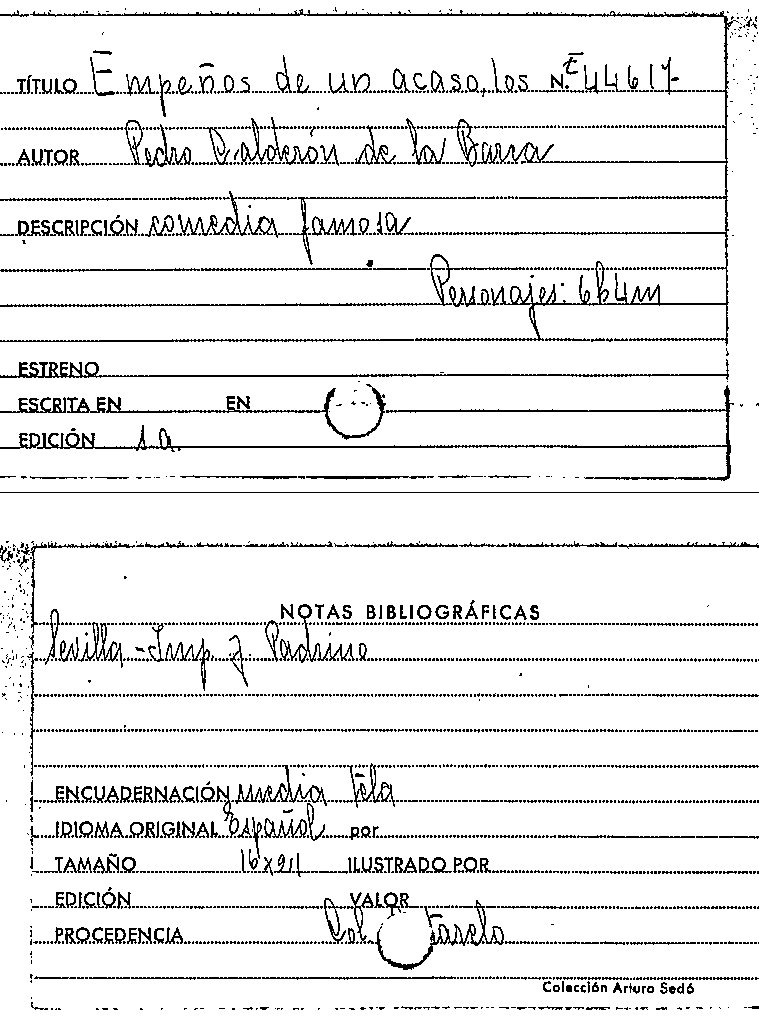 TÍTULO Empeños de un acaso, los N.º 44617
AUTOR Pedro Calderón de la Barca
DESCRIPCIÓN comedia famosa
Personajes: 6h4m
ESTRENO
ESCRITA EN EN
EDICIÓN s.a.
NOTAS BIBLIOGRÁFICAS
Sevilla - Imp. J. Padrino
ENCUADERNACIÓN media tela
IDIOMA ORIGINAL Español por
TAMAÑO 16x21 ILUSTRADO POR
EDICIÓN VALOR
PROCEDENCIA Col.
Colección Arturo Sedó